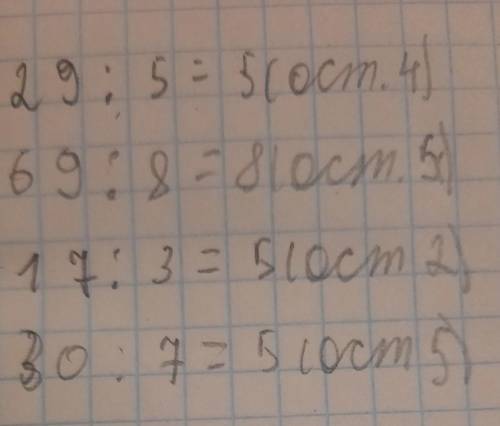 29 : 5 = 5 (ост. 4)
69 : 8 = 8 (ост. 5)
17 : 3 = 5 (ост 2)
30 : 7 = 5 (ост 5)